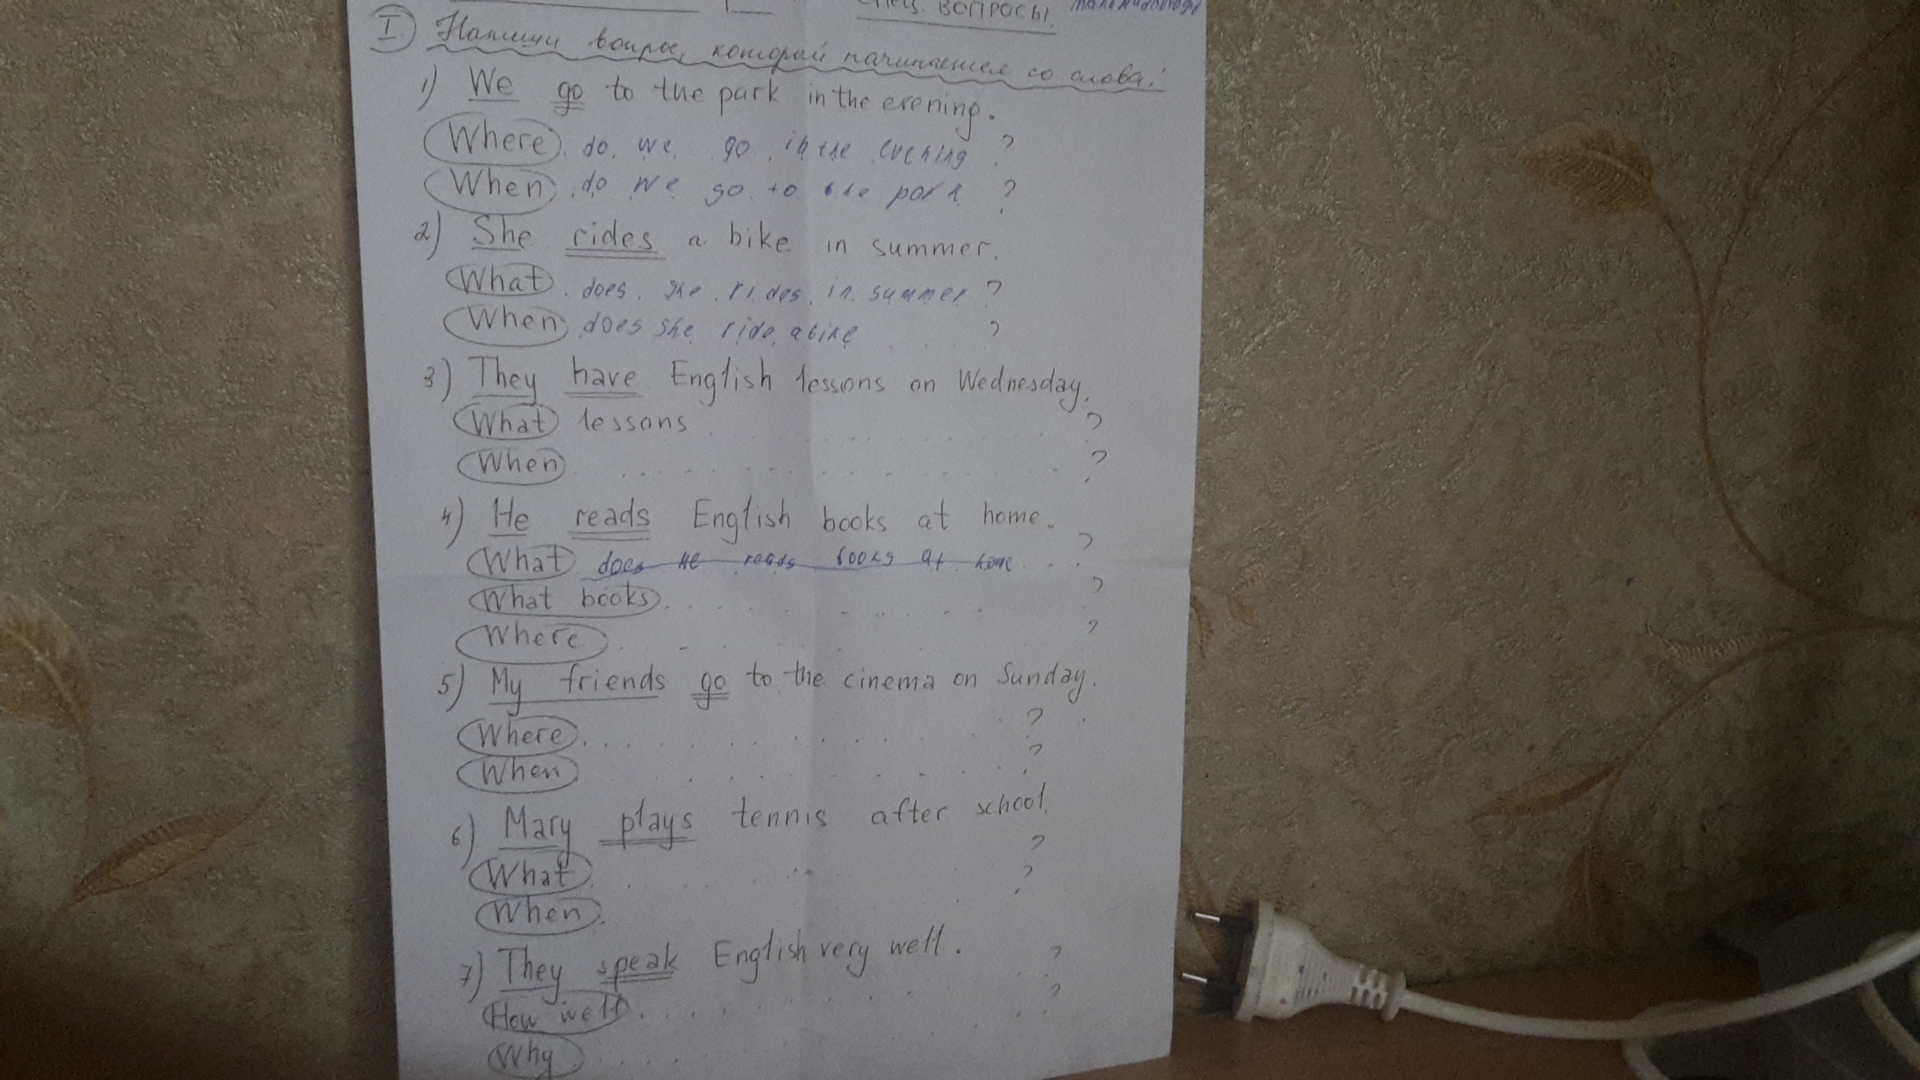 спец. вопросы
I. Напиши вопрос, который начинается со слова:
1) We go to the park in the evening.
Where do we go in the evening ?
When do we go to the park ?
2) She rides a bike in summer.
What does she rides in summer ?
When does she ride a bike ?
3) They have English lessons on Wednesday.
What lessons ?
When ?
4) He reads English books at home.
What does he reads books at home ?
What books ?
Where ?
5) My friends go to the cinema on Sunday.
Where ?
When ?
6) Mary plays tennis after school.
What ?
When ?
7) They speak English very well.
How well ?
Why ?